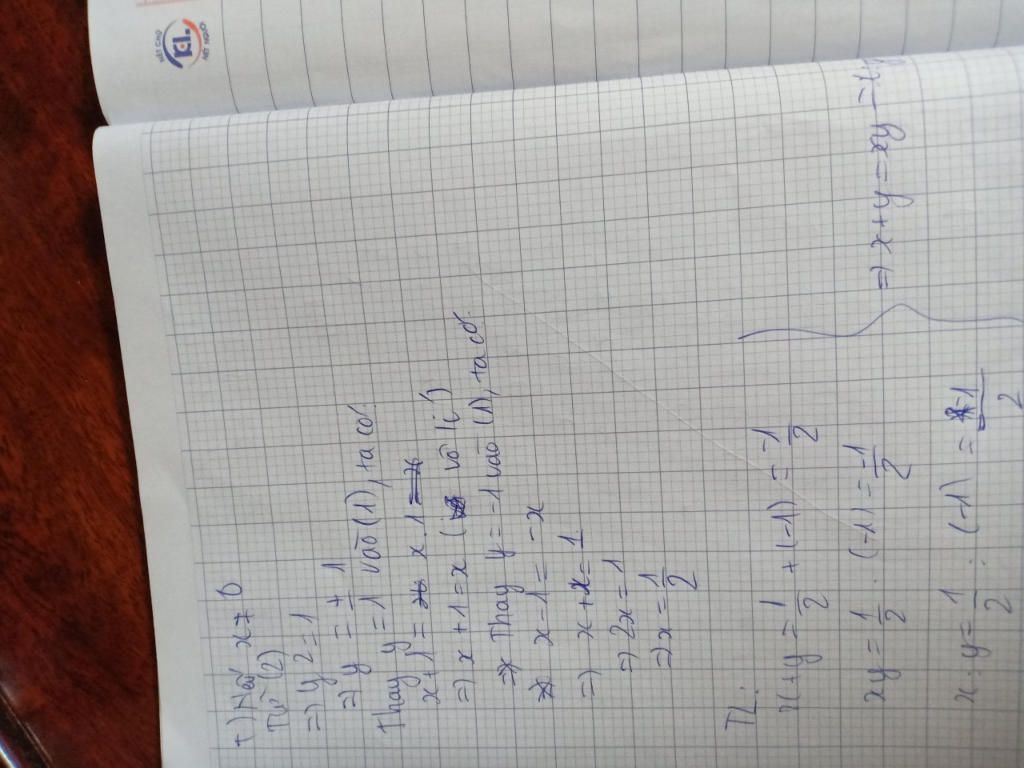 +) Nếu x ≠ 0
Từ (2)
=> y2 = 1
=> y = ± 1
Thay y = 1 vào (1), ta có:
x + 1 = x . 1
=> x + 1 = x (vô lí)
=> Thay y = -1 vào (1), ta có:
x - 1 = -x
=> x + x = 1
=> 2x = 1
=> x = 1/2
TL:
x + y = 1/2 + (-1) = -1/2
xy = 1/2 . (-1) = -1/2
=> x + y = xy =
x : y = 1/2 : (-1) = -1/2